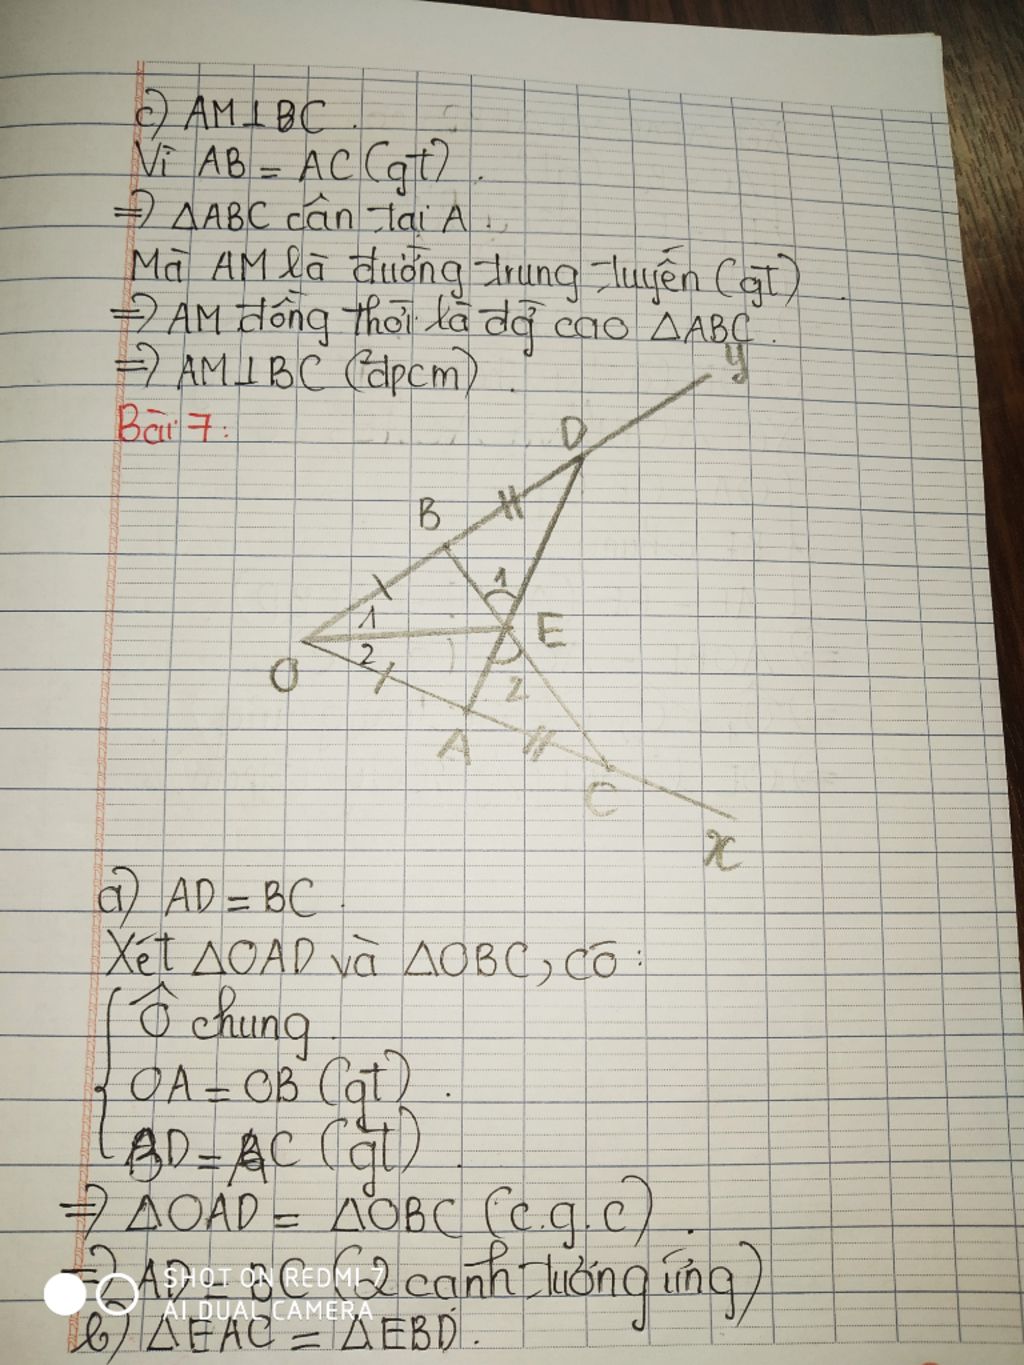 c) AM⊥BC.
Vì AB = AC (gt).
=> ΔABC cân tại A.
Mà AM là đường trung tuyến (gt).
=> AM đồng thời là đg cao ΔABC.
=> AM⊥BC (đpcm).
Bài 7:
y
D
B
1
1
E
2
O
2
A
C
x
a) AD = BC.
Xét ΔOAD và ΔOBC, có:
Ô chung.
OA = OB (gt).
BD = AC (gt).
=> ΔOAD = ΔOBC (c.g.c).
=> AD = BC (2 cạnh tương ứng)
SHOT ON REDMI 7
AI DUAL CAMERA
b) ΔEAC = ΔEBD.